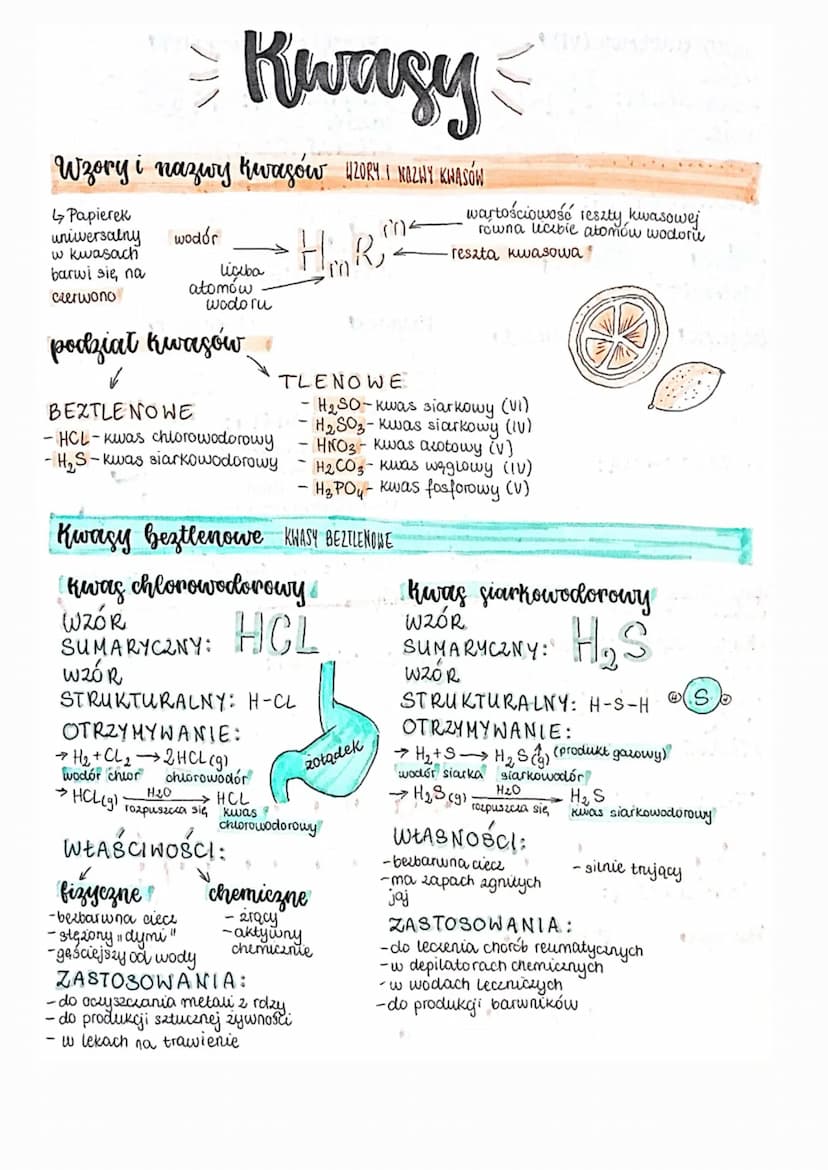 Kwasy
Wzory i nazwy kwasów WZORY I NAZWY KWASÓW
↳ Papierek
uniwersalny
w kwasach
barwi się na
czerwono
wodór
liczba
atomów
wodoru
HmRm
wartościowość reszty kwasowej
równa liczbie atomów wodoru
reszta kwasowa
podział kwasów
BEZTLENOWE
- HCL - kwas chlorowodorowy
- H₂S - kwas siarkowodorowy
TLENOWE
- H₂SO - kwas siarkowy (VI)
- H₂SO₃ - kwas siarkowy (IV)
- HNO₃ - kwas azotowy (V)
H₂CO₃ - kwas węglowy (IV)
- H₃PO₄ - kwas fosforowy (V)
Kwasy beztlenowe KWASY BEZTLENOWE
Kwas chlorowodorowy
WZÓR
SUMARYCZNY: HCL
WZÓR
STRUKTURALNY: H-CL
OTRZYMYWANIE:
→ H₂ + CL₂ → 2HCL(g)
wodór chlor chlorowodór
→ HCL(g) H₂O → HCL
rozpuszcza się kwas
chlorowodorowy
żołądek
WŁAŚCIWOŚCI:
fizyczne
- bezbarwna ciecz
- stężony "dymi"
- gęściejszy od wody
chemiczne
- żrący
- aktywny
chemicznie
ZASTOSOWANIA:
- do oczyszczania metali z rdzy
- do produkcji sztucznej żywności
- w lekach na trawienie
Kwas siarkowodorowy
WZÓR
SUMARYCZNY: H₂S
WZÓR
STRUKTURALNY: H-S-H H S H
OTRZYMYWANIE:
→ H₂ + S → H₂S(g)↑ (produkt gazowy)
wodór siarka siarkowodór
→ H₂S(g) H₂O → H₂S
rozpuszcza się kwas siarkowodorowy
WŁASNOŚCI:
- bezbarwna ciecz
- ma zapach zgniłych
jaj
- silnie trujący
ZASTOSOWANIA:
- do leczenia chorób reumatycznych
- w depilatorach chemicznych
- w wodach leczniczych
- do produkcji barwników